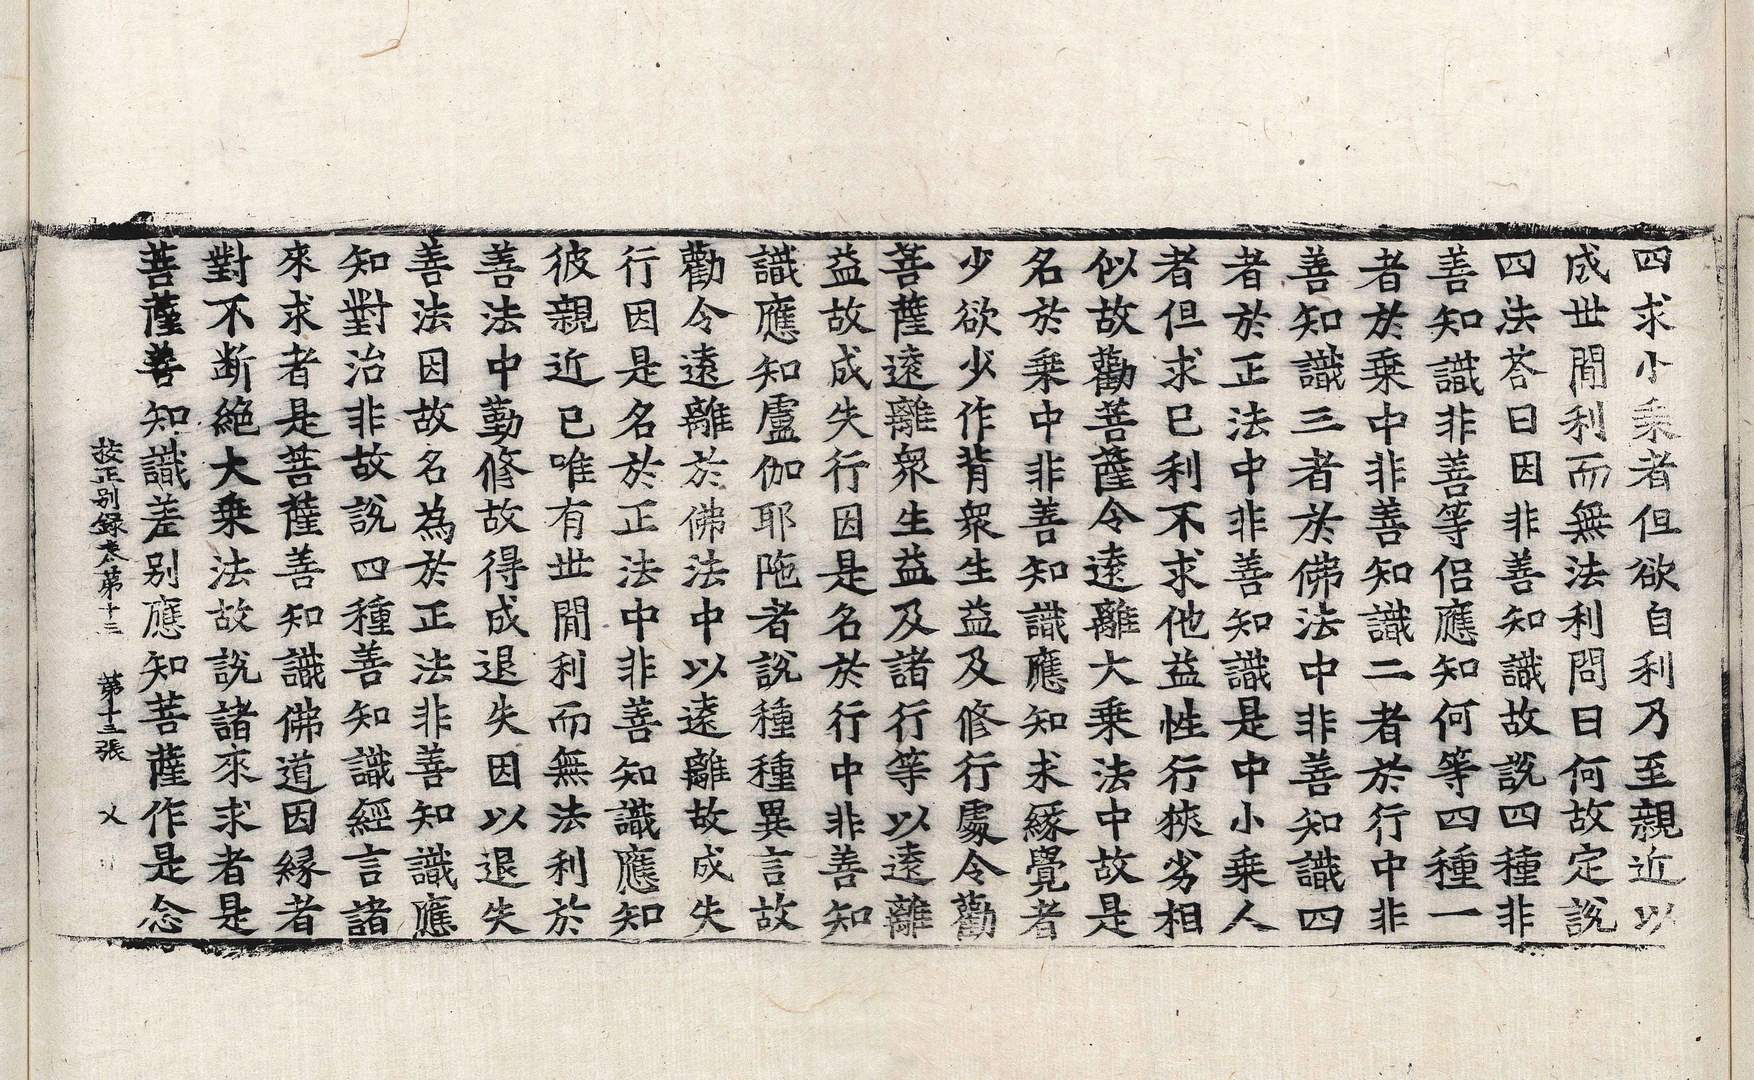 四求小乗者但欲自利乃至親近以
成世間利而無法利問曰何故定說
四法荅曰因非善知識故說四種非
善知識非善等侶應知何等四種一
者於乗中非善知識二者於行中非
善知識三者於佛法中非善知識四
者於正法中非善知識是中小乗人
者但求巳利不求他益性行狹劣相
似故勸菩薩令遠離大乗法中故是
名於乗中非善知識應知求緣覺者
少欲少作背衆生益及修行處令勸
菩薩遠離衆生益及諸行等以遠離
益故成失行因是名於行中非善知
識應知盧伽耶陁者說種種異言故
勸令遠離於佛法中以遠離故成失
行因是名於正法中非善知識應知
彼親近巳唯有世間利而無法利於
善法中勤修故得成退失因以退失
善法因故名為於正法非善知識應
知對治非故說四種善知識經言諸
來求者是菩薩善知識佛道因縁者
對不断絶大乗法故說諸來求者是
菩薩善知識差别應知菩薩作是念
按正别録卷第十三 第十三張 乂